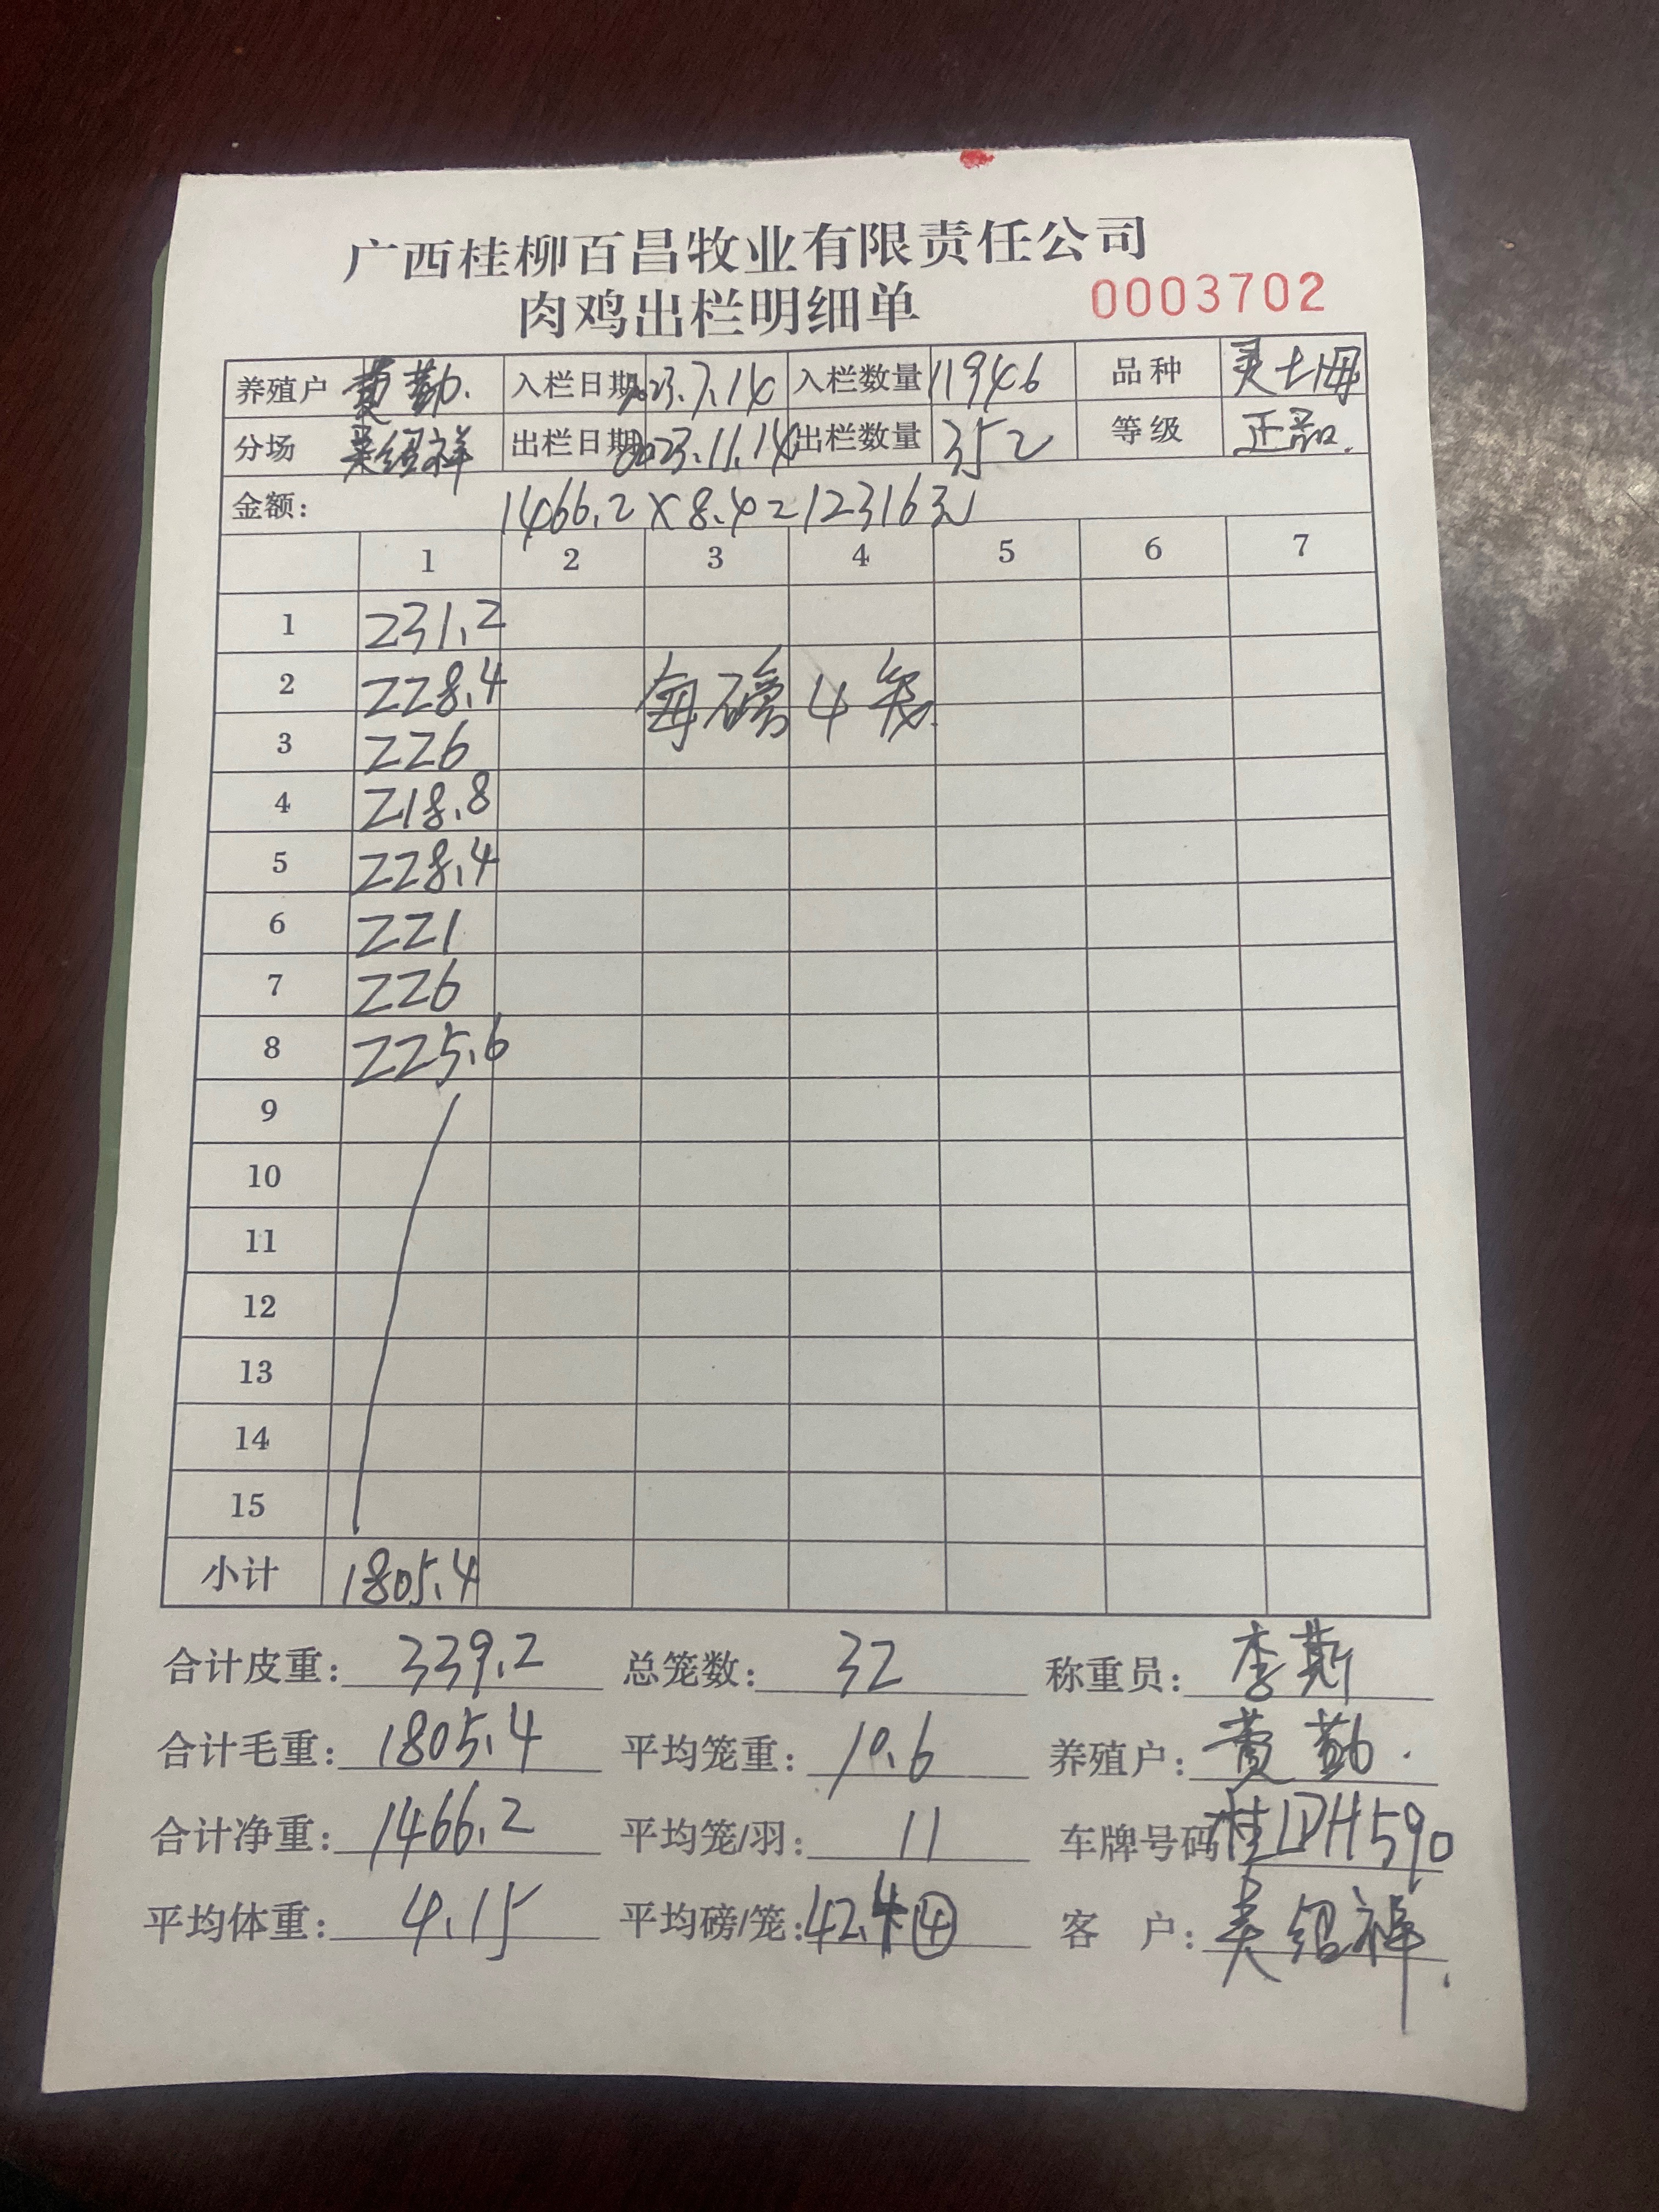 广西桂柳百昌牧业有限责任公司
肉鸡出栏明细单 0003702
养殖户 黄勤. 入栏日期 2023.7.14 入栏数量 11946 品种 灵士母
分场 吴绍祥 出栏日期 2023.11.14 出栏数量 352 等级 正品.
金额: 1466.2×8.4=12316元
1 2 3 4 5 6 7
1 231.2
2 228.4 每磅4笼.
3 226
4 218.8
5 228.4
6 221
7 226
8 225.6
9
10
11
12
13
14
15
小计 1805.4
合计皮重: 339.2 总笼数: 32 称重员: 李斯
合计毛重: 1805.4 平均笼重: 10.6 养殖户: 黄勤.
合计净重: 1466.2 平均笼/羽: 11 车牌号码 桂LDH590
平均体重: 4.15 平均磅/笼: 42.4 ④ 客 户: 吴绍祥.